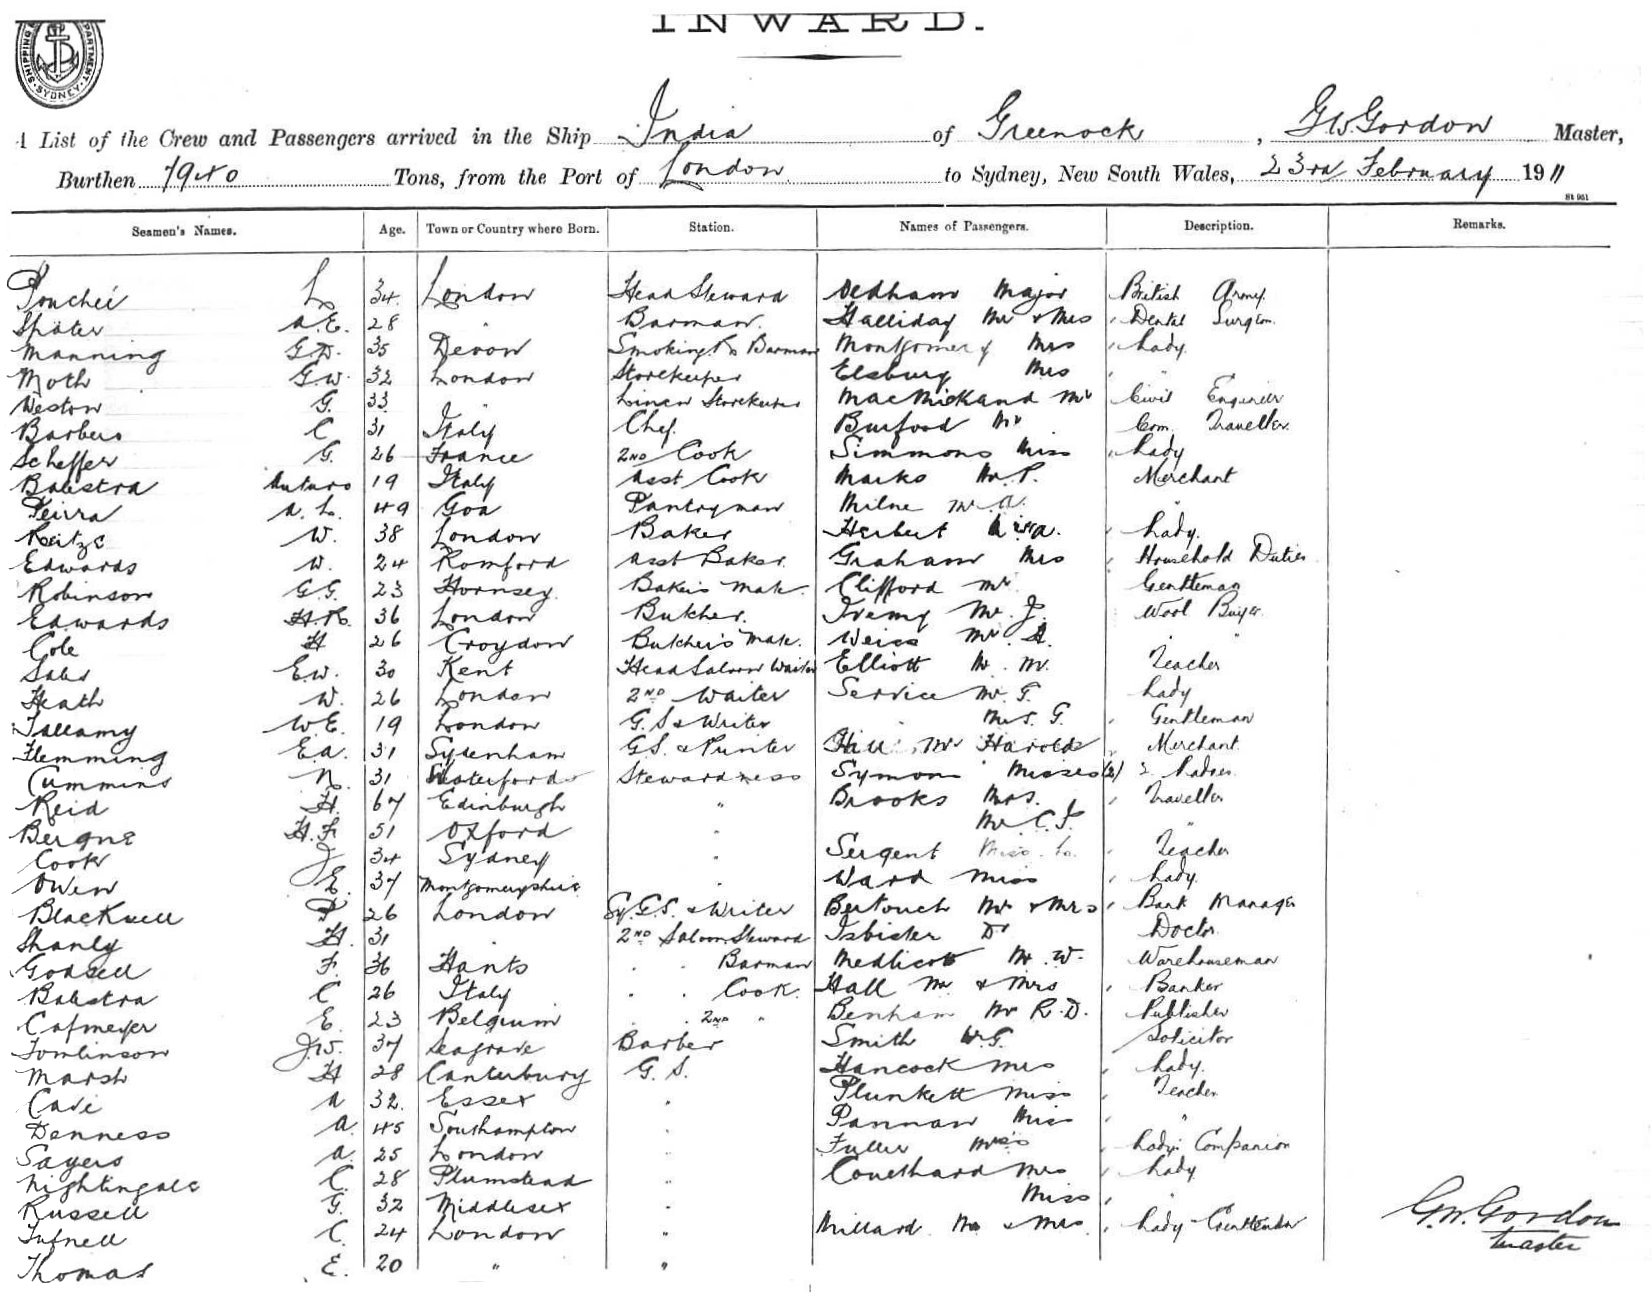 INWARD.
SHIPPING DEPARTMENT. SYDNEY
A List of the Crew and Passengers arrived in the Ship India of Greenock, G W Gordon Master,
Burthen 7940 Tons, from the Port of London to Sydney, New South Wales, 23rd February 1911
St 951
Seamen's Names. Age. Town or Country where Born. Station. Names of Passengers. Description. Remarks.
L 34 London Head Steward Dedham Major British Army
A.E. 28 " Barman Halliday Mr & Mrs Dental Surgeon
Manning G.D. 35 Devon Smoking Rm Barman Montgomery Mrs Lady
Moth G.W. 32 London Storekeeper Elsburg Mrs "
Weston G. 33 " Linen Storekeeper Mr Civil Engineer
Barbero C 31 Italy Chef Burford Mr Com. Traveller
Scheffer G. 26 France 2ND Cook Simmons Miss Lady
Balestra Arturo 19 Italy Asst Cook Marks Mr P. Merchant
A. L. 49 Goa Pantryman Milne Mr A. "
W. 38 London Baker Herbert Lady.
Edwards W. 24 Romford Asst Baker Graham Mrs Household Duties
Robinson G.G. 23 Hornsey Baker's Mate Clifford Mr Gentleman
Edwards H.R. 36 London Butcher. Mr. J. Wool Buyer
Cole H 26 Croydon Butcher's Mate. Weiss Mr "
E.W. 30 Kent Head Saloon Waiter Elliott Mr. M. Teacher
Heath W. 26 London 2ND Waiter Service Mr. G. Lady
Tallamy W.E. 19 London G.S & Writer " Mrs. G. Gentleman
Flemming E.A. 31 Sydenham G.S. & Printer Hill Mr Harold Merchant
Cummins N. 31 Waterford Stewardness Symons Misses (2) 2 Ladies
Reid H. 67 Edinburgh " Brooks Mrs. Traveller
Bergne H.F. 51 Oxford " Mr C.F. "
Cook J 34 Sydney " Sergent Miss L. Teacher
Owen E. 37 Montgomeryshire " Ward Miss Lady
Blackwell F 26 London G.S. & Writer Bertouch Mr & Mrs Bank Manager
Shanly H. 31 " 2ND Saloon Steward Isbister Dr Doctor
Godsell F. 36 Hants " " Barman Medlicott Mr. W. Warehouseman
Balestra C 26 Italy " " Cook. Hall Mr & Mrs Banker
Cafmeyer E. 23 Belgium " " 2ND " Benham Mr R.D. Publisher
Tomlinson J.W. 37 Seagrave Barber Smith W.G. Solicitor
Marsh H 28 Canterbury G. S. Hancock Mrs Lady.
Cave A 32. Essex " Plunkett Miss Teacher
Denness A. 45 Southampton " Pannan Miss "
Sayers A. 25 London " Fuller Miss Lady's Companion
Nightingale C. 28 Plumstead " Coulthard Mrs Lady
Russell G. 32 Middlesex " Miss "
Tufnell C. 24 London " Millard Mr & Mrs Lady - Gentleman
Thomas E. 20 " "
G.W. Gordon
Master